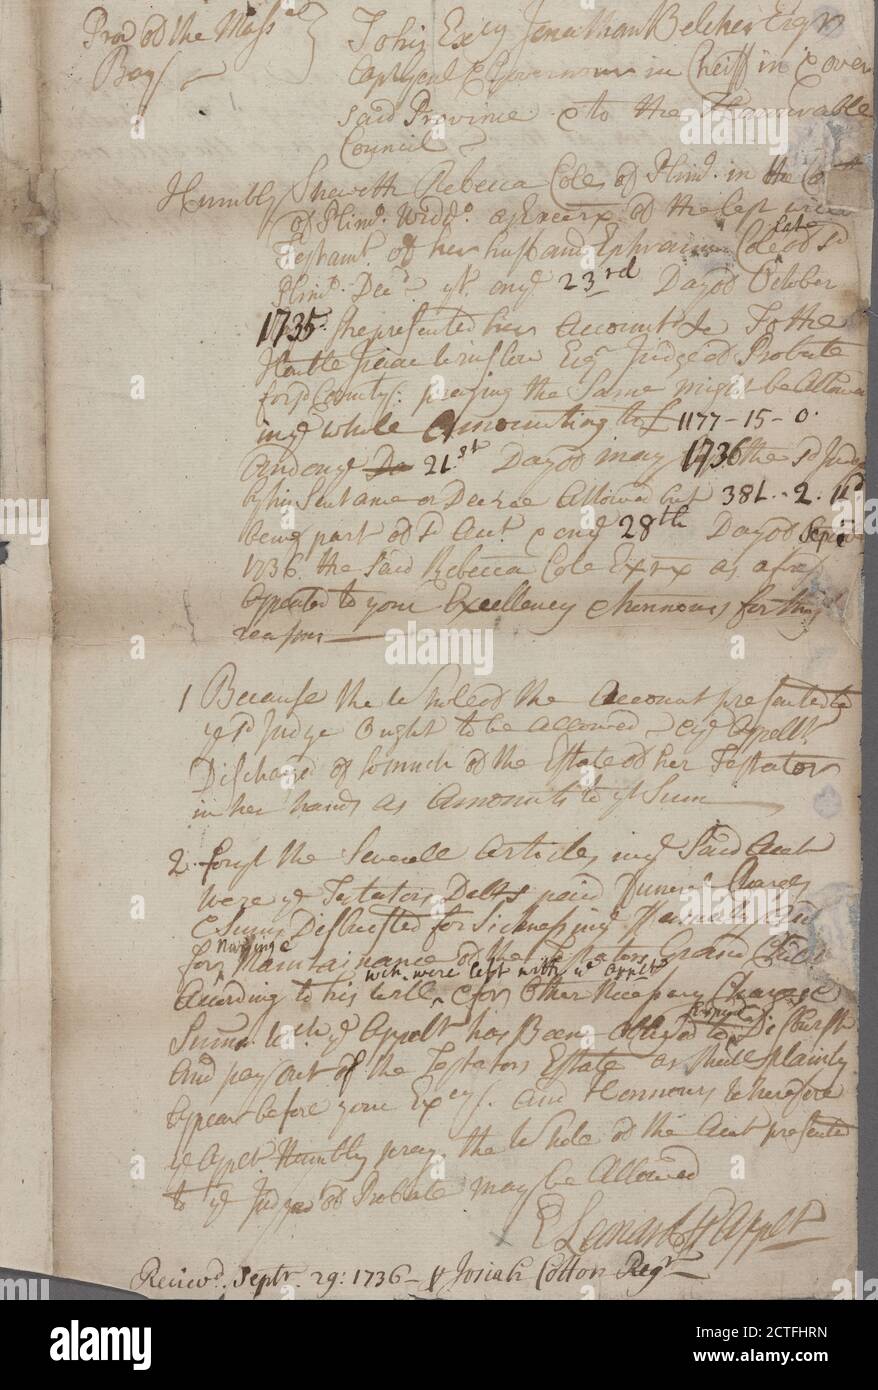 Prov of the Mass
Bay
To his Excy Jonathan Belcher Esqr
Capt Genl & Governour in Cheiff in & over
said Province & to the Honourable
Council
Humbly Sheweth Rebecca Cole of Plimo. in the
of Plimo. Widdo. as Execrx. of the Last will
Testamt. of her husband Ephraim Cole of sd
late
Plimo. Decd. yt. on ye 23rd Day of October
1735. presented her Account To the
Honble Isaac Winslow Esqr Judge of Probate
for sd County praying the Same might be Allowed
in ye whole Amounting to £1177-15-0.
And on ye 21st Day of may 1736 the sd Judge
by his Sentance or Decree Allowed but 381..2.11d
being part of sd Act. & on ye 28th Day of Septr
1736 the said Rebecca Cole Exrx as afores
Appealed to your Excellency & honnours for these
reasons
1 Because the Whole of the Account presented to
ye sd Judge Ought to be allowed & ye Appellt
Discharged of so much of the Estate of her Testator
in her hands as Amounts to yt Sum
2 the Severall Articles in ye Said Acct
were ye Testators Debts paid Funeral Charges
& Sums Disbursted for Sickness in ye Family And
for Maintainance of the Testators Grand Child
Nursing &
According to his will & for other Necessary Charges
wch. were left with ye Applt
Sums wch ye Appelt has Been to Disburse
And pay out of the Testators Estate as shall plainly
Appear before your Excy. and Honnours Wherefore
ye Applt. Humbly prays the Whole of the Acct presented
to ye Judge of Probate may be Allowed
Leonard pr Applt
Receivd. Septr. 29: 1736 - pr Josiah Cotton Regr
alamy
Image ID: 2CTFHRN
www.alamy.com